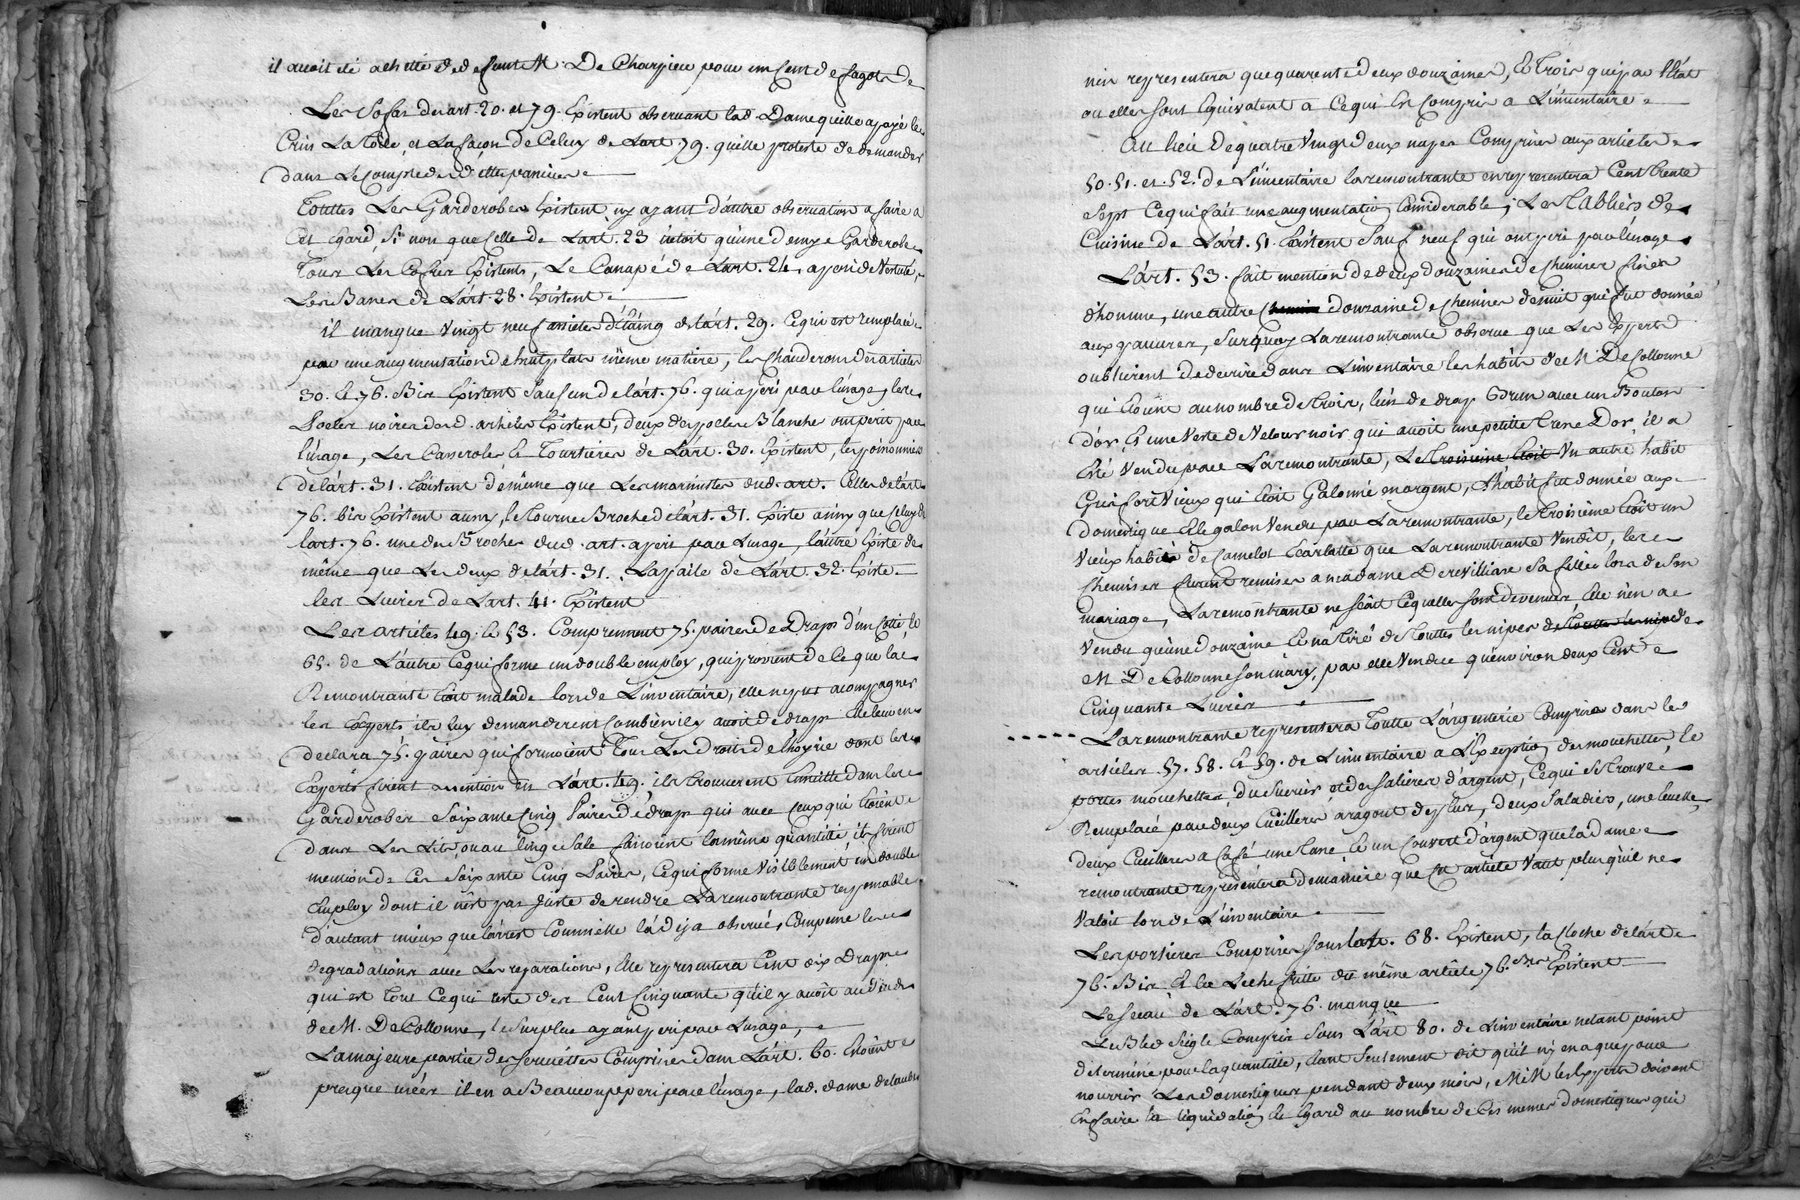 il avoit été achetté de defeunt M. De Charpieu pour un Cent de fagots
Les Sofas des art. 20. et 79. Existent observant lad. Dame quelle a payé le
Crin La toile, et La façon de Celuy de Lart. 79. quelle proteste de demander
dans Le Compte des
Touttes Les Garderobes Existent, ny ayant d'autre observation a faire a
Cet Egard, Si non que Celle de Lart. 23 n'etoit qu'une demye Garderobe
Tous Les Coffres Existents, Le Canapé de Lart. 24. a peri de Vetusté,
Les Bancs de L'art. 28. Existent
il manque Vingt neuf assietes d'Etaing de l'art. 29. Ce qui est remplacé
par une augmentation de huit plats même matiere, les Chauderons des articles
30. Et 76. Bis Existent Sauf un de l'art. 76. qui a peri par l'usage, les
Poeles noires desd. articles Existent, deux des poeles Blanche ont perit par
l'usage, Les Casseroles Et Tourtieres de L'art. 30. Existent, les poissonnieres
de l'art. 31. Existent de même que Les marmittes dud. art. Celles de l'art.
76. bis Existent aussy, le Tourne Broche de l'art. 31. Existe ainsy que Celuy de
lart. 76. une des Broches dud. art. a peri par L'usage, l'autre Existe de
même que Les deux de l'art. 31. La paile de L'art. 32. Existe
les Cuirs de Lart. 41. Existent
Les articles 49. Et 53. Comprennent 75. paires de Draps d'un Cotté, Et
65. de L'autre Ce qui forme un double employ, qui provient de Ce que la
Remontrante Etoit malade lors de L'inventaire, elle ne put acompagner
les Experts ils luy demanderent Combien il y avoit de draps Elle leur en
declara 75. paires qui formoient Tous Les draps de l'hoyrie dont les
Experts firent mention en L'art. 49. ils trouverent Ensuitte dans les
Garderobes Soixante Cinq Paires de draps qui avec Ceux qui Etoient
dans Les Lits, ou au linge Sale faisoient la même quantité, ils firent
mention de Ces Soixante Cinq Paires, Ce qui forme Visiblement un double
Employ dont il n'est pas Juste de rendre La remontrante responsable
d'autant mieux que Comme Elle l'a deja observé, Compensé les
degradations avec Les reparations, Elle representera Cent dix Draps
qui est Tout Ce qui reste des Cent Cinquante qu'il y avoit au deces
de M. De Collonne, Le Surplus ayant peri par L'usage,
La majeure partie des Serviettes Comprises dans L'art. 60. Etoient
presque usées il en a Beaucoup peri par l'usage, lad. dame
representera que quarente deux douzaines, Et Trois qui par l'Etat
ou elles Sont Equivalent a Ce qui Est Compris a L'inventaire
Au lieu de quatre Vingt deux napes Comprises aux articles
50. 51. et 52. de L'inventaire la remontrante en representera Cent trente
Sept Ce qui fait une augmentation Considerable, Les Tabliers de
Cuisine de L'art. 51. Existent Sauf neuf qui ont peri par l'usage
L'art. 53. fait mention de deux douzaines de Chemises fines
d'homme, une autre douzaine de Chemises de nuit qui fut donnée
aux pauvres, Surquoy La remontrante observe que Les Experts
oublierent de decrire dans L'inventaire les habits de M. De Collonne
qui Etoient au nombre de trois, l'un de drap Brun avec un Bouton
d'or, Et une Veste de Velours noir, qui avoit une petite Tresse D'or, il a
Eté Vendu par La remontrante, Le troisieme Etoit Un autre habit
Gris fort Vieux qui Etoit Galonné en argent, l'habit fut donnée aux
domestique Et le galon Vendu par La remontrante, le troisieme Etoit un
Vieux habit de Camelot Ecarlatte que La remontrante Vendit, les
Chemises furent remises a madame Derevilliare Sa fille lors de Son
mariage, La remontrante ne Sçait Ce quelles Sont devenues Elle n'en a
Vendu qu'une douzaine Et n'a tiré de touttes les nipes de touttes les nipes de
M. De Collonne Son mary, par elle Vendue qu'environ deux Cent
Cinquante Livres
La remontrante representera Toutte L'argenterie Comprise dans les
articles 57. 58. Et 59. de L'inventaire a L'Exception des mouchettes, Et
portes mouchettes, du Sucrier et des Salieres d'argent, Ce qui Se trouve
Remplacé par deux Cueilleres a ragout de plus, deux Saladiers, une
deux Cueilleres a Caffé une Tasse, Et un Couvert d'argent que la dame
remontrante representera de maniere que Cet article Vaut plus qu'il ne
Valoit lors de L'inventaire
Les portieres Comprises Sous l'art. 68. Existent, la Cloche de l'art.
76. Bis Et la Leche fritte du même article 76. Bis Existent
Le Seau de L'art. 76. manque
Le Bled Seigle Compris Sous L'art 80. de L'inventaire n'etant point
determiné pour la quantitté, Etant Seulement dit qu'il n'y en a que pour
nourrir Les domestiques pendant deux mois, MM. les Experts doivent
En faire la liquidation Et Egard au nombre de Ces memes domestiques qui